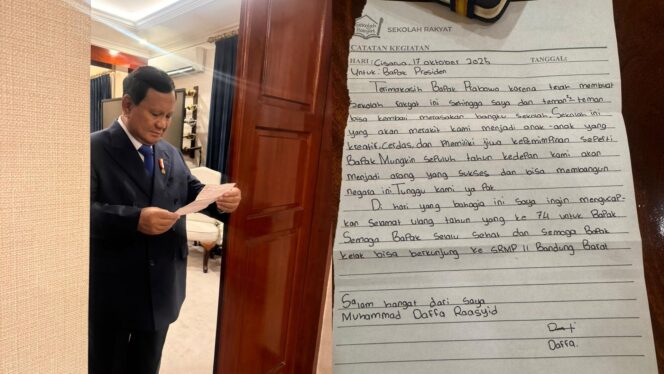 SEKOLAH RAKYAT
CATATAN KEGIATAN
HARI: Cisarua, 17 oktober 2025 TANGGAL:
Untuk: Bapak Presiden
Terimakasih Bapak Prabowo karena telah membuat
sekolah rakyat ini sehingga saya dan teman²-teman
bisa kembali merasakan bangku sekolah. Sekolah ini
yang akan merakit kami menjadi anak-anak yang
kreatif, Cerdas, dan memiliki jiwa kepemimpinan seperti
Bapak. Mungkin sepuluh tahun kedepan kami akan
menjadi orang yang sukses dan bisa membangun
negara ini. Tunggu kami ya Pak
Di hari yang bahagia ini saya ingin mengucap-
kan selamat ulang tahun yang ke 74 untuk Bapak.
Semoga Bapak selalu sehat dan semoga Bapak
kelak bisa berkunjung ke SRMP 11 Bandung Barat
Salam hangat dari saya
Muhammad Daffa Raasyid
Daffa.